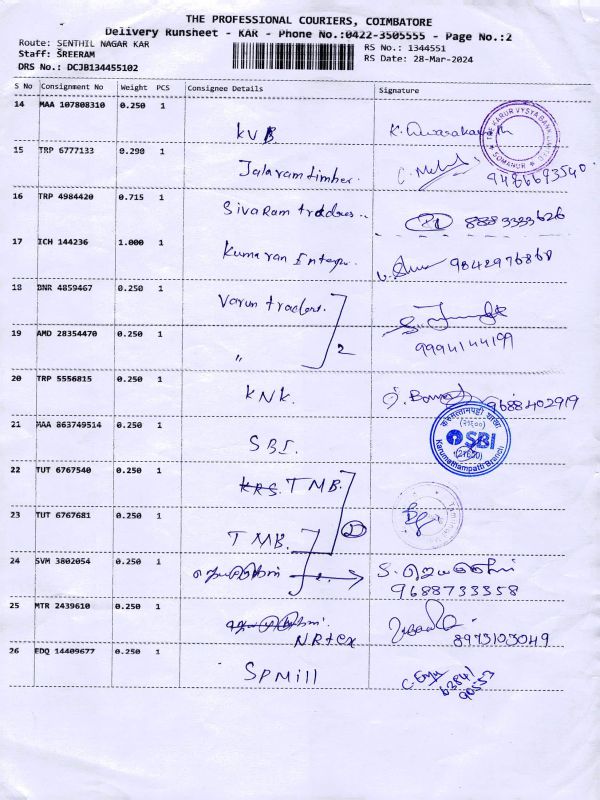 THE PROFESSIONAL COURIERS, COIMBATORE
Delivery Runsheet - KAR - Phone No.:0422-3505555 - Page No.:2
Route: SENTHIL NAGAR KAR
RS No.: 1344551
Staff: SREERAM
RS Date: 28-Mar-2024
DRS No.: DCJB134455102
S No Consignment No Weight PCS Consignee Details Signature
14 MAA 107808310 0.250 1 KVB
15 TRP 6777133 0.290 1 Jalaram timber.
16 TRP 4984420 0.715 1 Sivaram traders.. 8883333626
17 ICH 144236 1.000 1 Kumaran Enterp. 9842976868
18 DNR 4859467 0.250 1 Varun traders.
19 AMD 28354470 0.250 1 " 2 9994144199
20 TRP 5556815 0.250 1 KNK. 9688402919
21 MAA 863749514 0.250 1 SBI. SBI
Karumathampatti Branch
22 TUT 6767540 0.250 1 KRS. TMB.
23 TUT 6767681 0.250 1 TMB.
24 SVM 3802054 0.250 1
9688733358
25 MTR 2439610 0.250 1
NRtex 8973103049
26 EDQ 14409677 0.250 1 SPMill
63841
90557